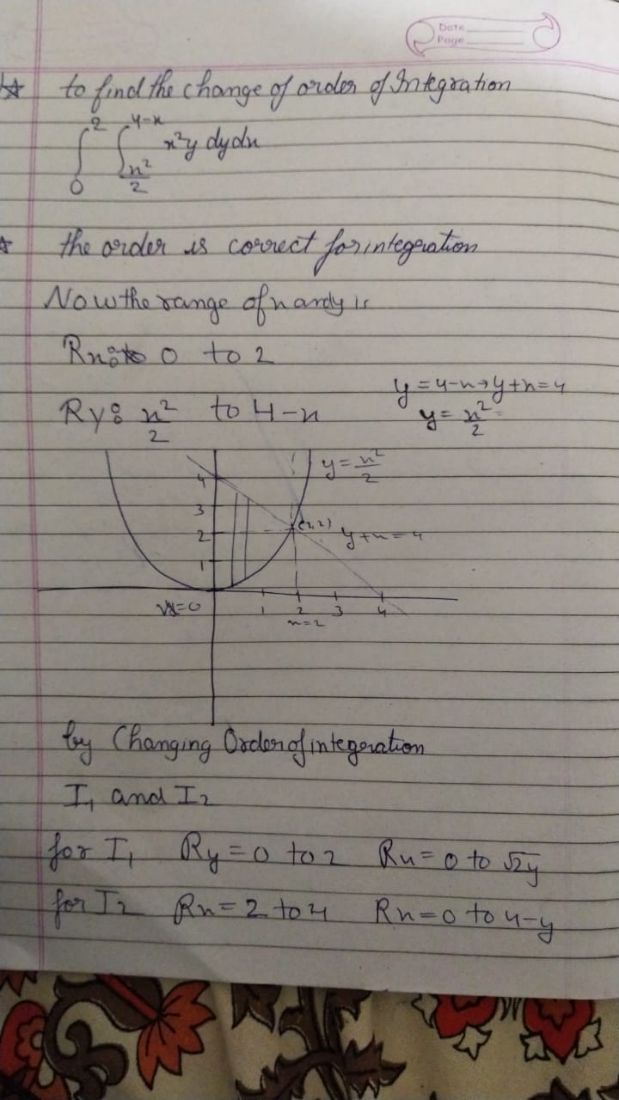 Date
Page
to find the change of order of Integration
∫₀² ∫_{x²/2}^{4-x} x²y dydx
the order is correct for integeration
Now the range of x and y is
Rx: 0 to 2
y = 4-x → y+x=4
Ry: x²/2 to 4-x
y = x²/2
y = x²/2
4
3
2
(2,2)
y+x=4
1
x=0
1 2 3 4
x=2
by Changing Order of integeration
I₁ and I₂
for I₁ Ry = 0 to 2 Rx = 0 to √2y
for I₂ Rx = 2 to 4 Rx = 0 to 4-y